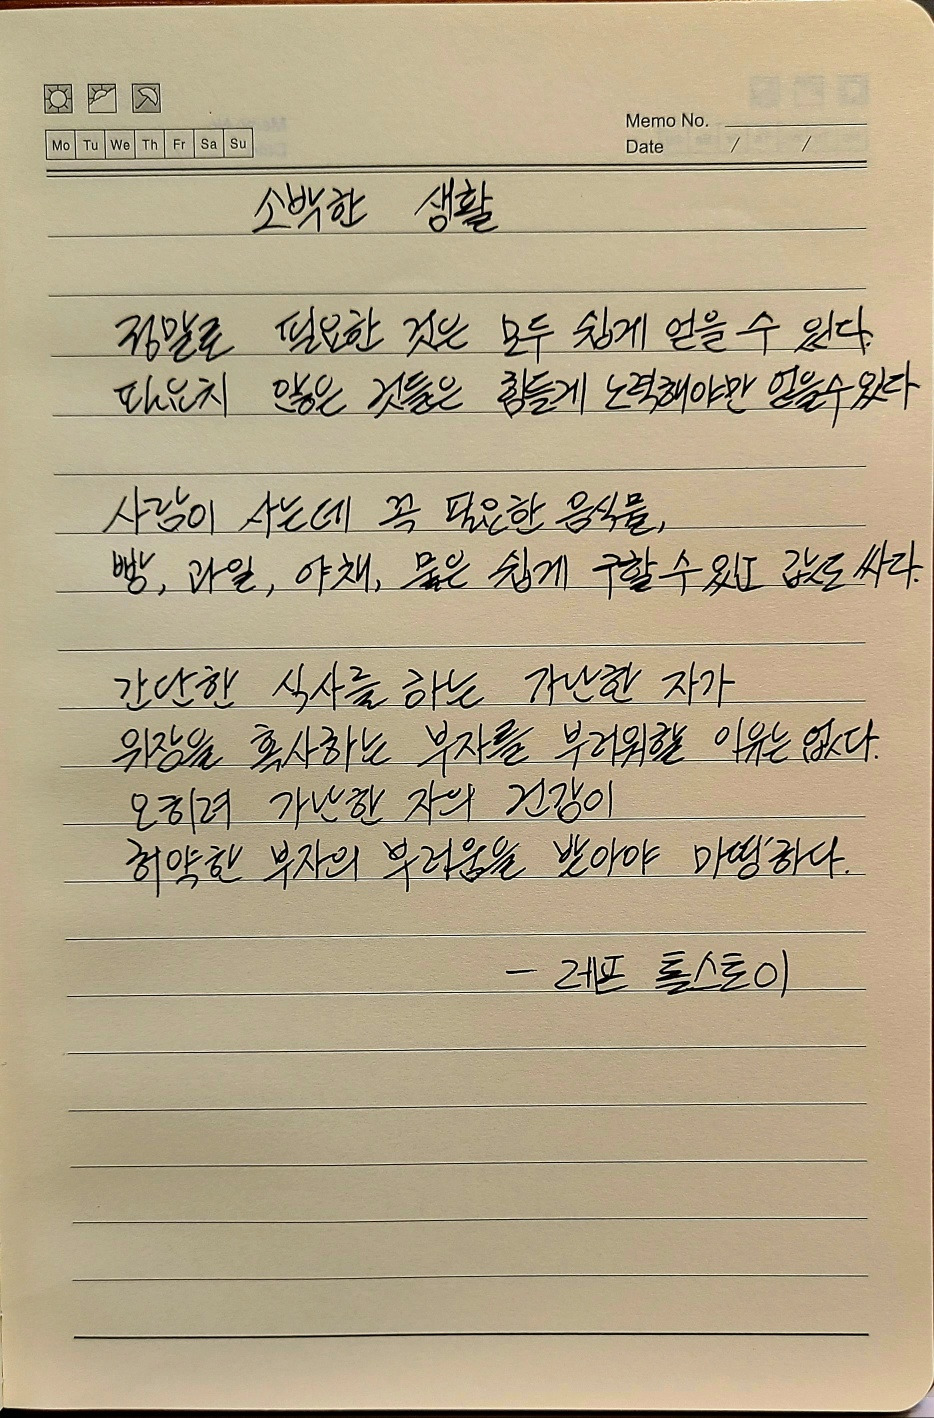 Mo Tu We Th Fr Sa Su
Memo No.
Date / /
소박한 생활
정말로 필요한 것은 모두 쉽게 얻을 수 있다.
필요치 않은 것들은 힘들게 노력해야만 얻을수있다
사람이 사는데 꼭 필요한 음식물,
빵, 과일, 야채, 물은 쉽게 구할수있고 값도 싸다.
간단한 식사를 하는 가난한 자가
위장을 혹사하는 부자를 부러워할 이유는 없다.
오히려 가난한 자의 건강이
허약한 부자의 부러움을 받아야 마땅하다.
- 레프 톨스토이